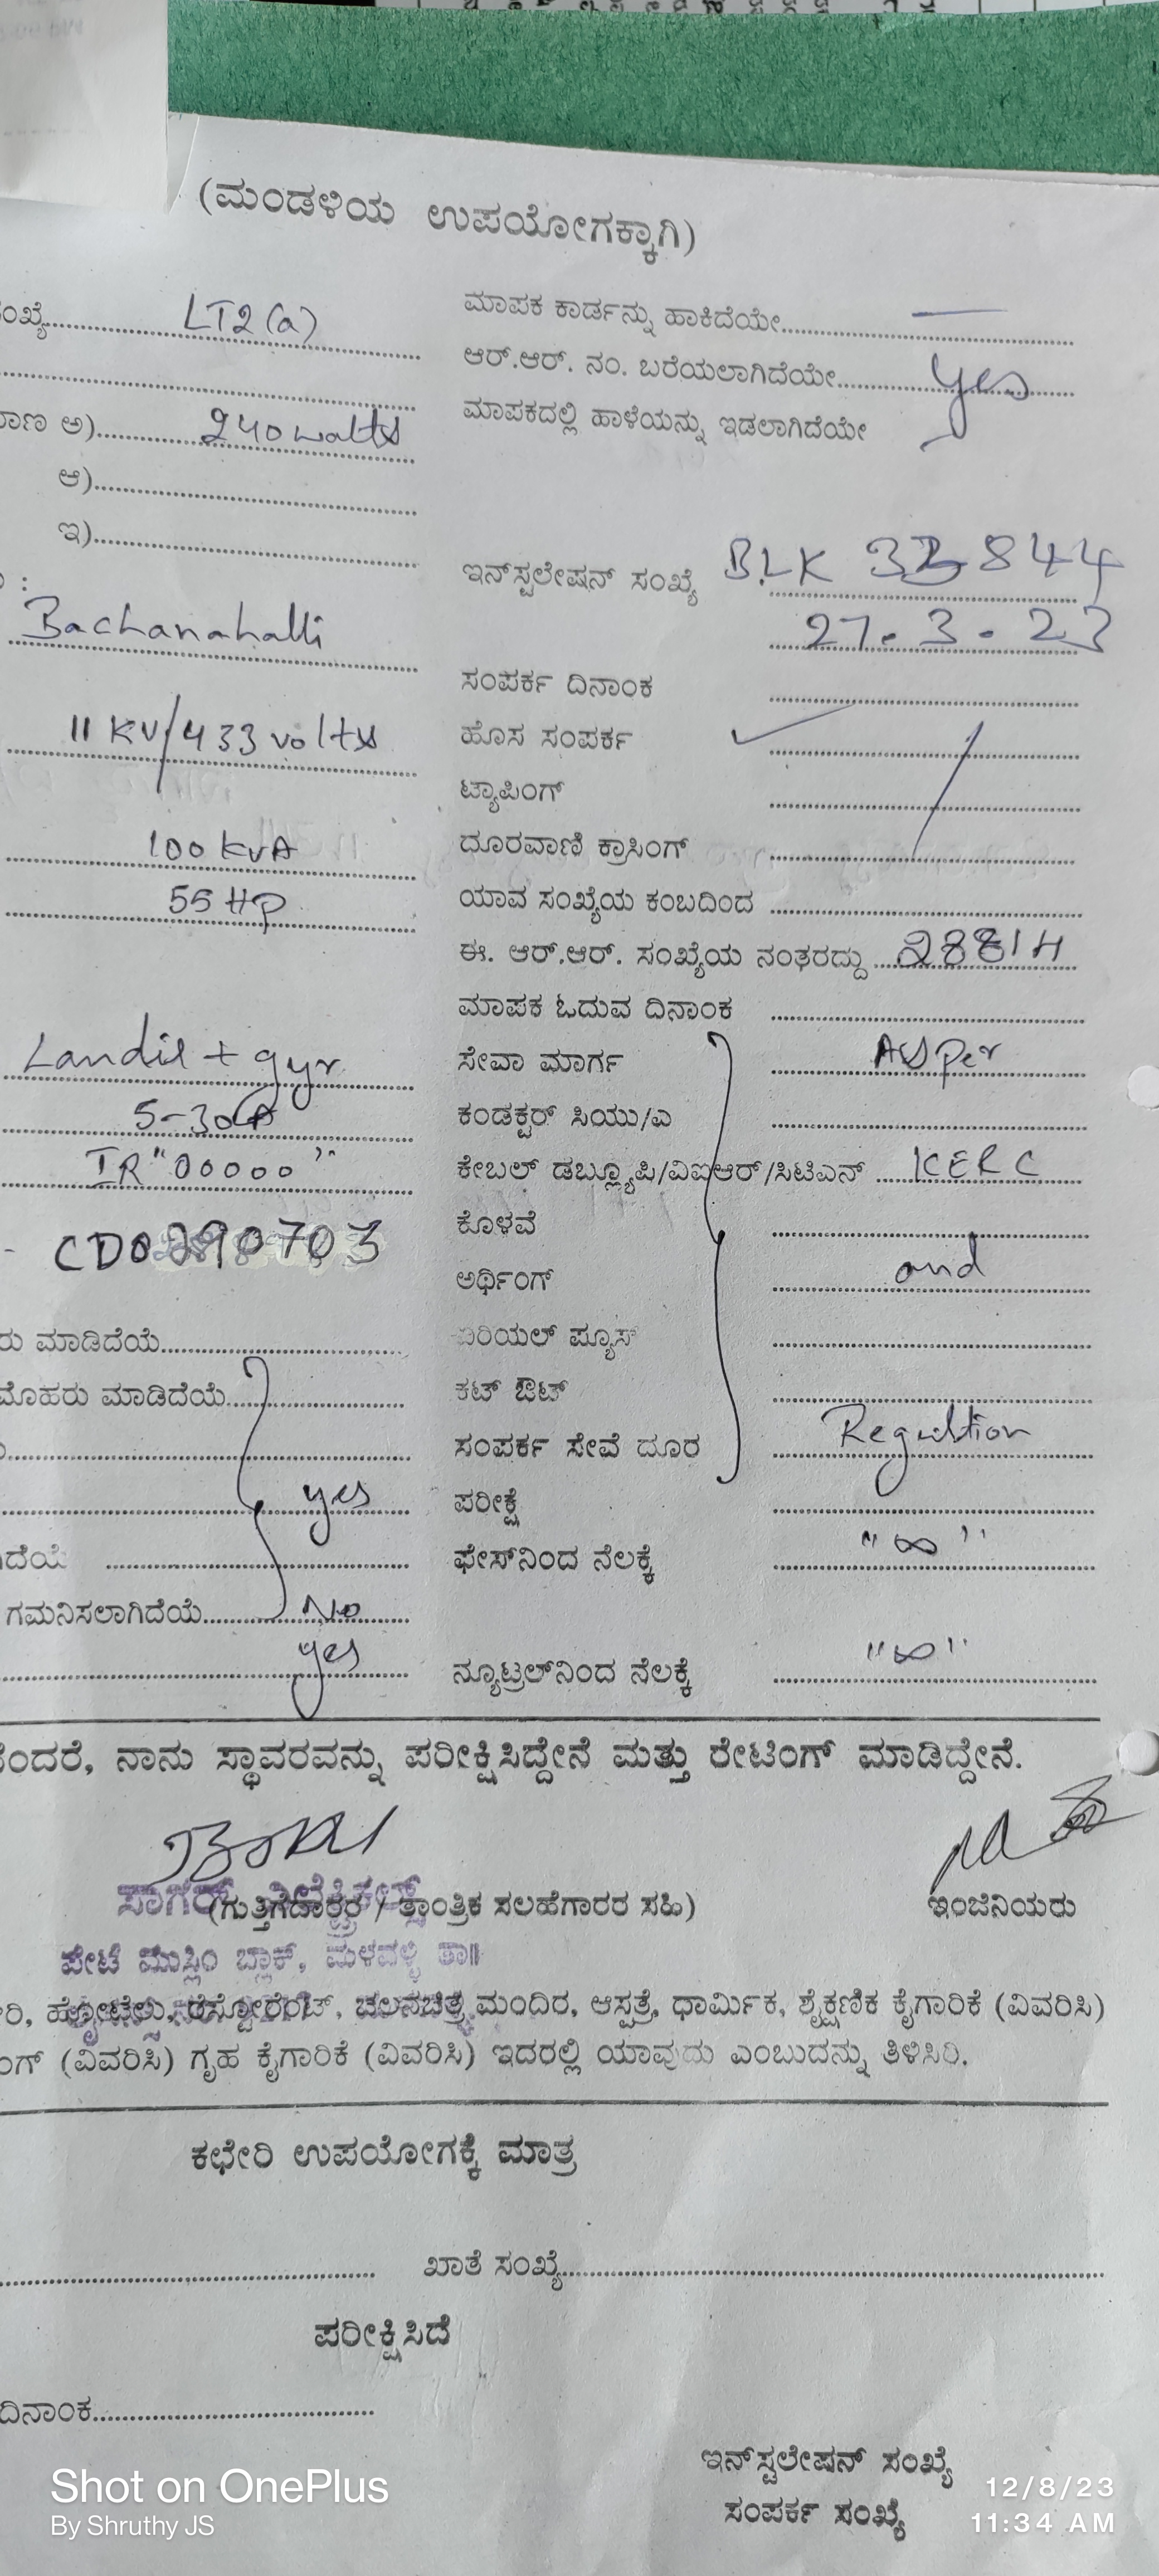 (ಮಂಡಳಿಯ ಉಪಯೋಗಕ್ಕಾಗಿ)
ಸಂಖ್ಯೆ LT2(a)
ಮಾಪಕ ಕಾರ್ಡನ್ನು ಹಾಕಿದೆಯೇ —
ಆರ್.ಆರ್. ನಂ. ಬರೆಯಲಾಗಿದೆಯೇ yes
ಅ) 240 watts
ಮಾಪಕದಲ್ಲಿ ಹಾಳೆಯನ್ನು ಇಡಲಾಗಿದೆಯೇ
ಆ)
ಇ)
ಇನ್‌ಸ್ಟಲೇಷನ್ ಸಂಖ್ಯೆ BLK 33844
Bachanahalli
27.3.23
ಸಂಪರ್ಕ ದಿನಾಂಕ
11 KV/433 volts
ಹೊಸ ಸಂಪರ್ಕ ✓
ಟ್ಯಾಪಿಂಗ್
100 KVA
ದೂರವಾಣಿ ಕ್ರಾಸಿಂಗ್
55 HP
ಯಾವ ಸಂಖ್ಯೆಯ ಕಂಬದಿಂದ
ಈ. ಆರ್.ಆರ್. ಸಂಖ್ಯೆಯ ನಂತರದ್ದು
ಮಾಪಕ ಓದುವ ದಿನಾಂಕ
Landis + gyr
ಸೇವಾ ಮಾರ್ಗ As per
5-30A
ಕಂಡಕ್ಟರ್ ಸಿಯು/ಎ
IR "00000"
ಕೇಬಲ್ ಡಬ್ಲ್ಯೂಪಿ/ವಿಐಆರ್/ಸಿಟಿಎನ್ KERC
ಕೊಳವೆ
ಅರ್ಥಿಂಗ್ and
ರು ಮಾಡಿದೆಯೆ
ಏರಿಯಲ್ ಪ್ಯೂಸ್
ಮೊಹರು ಮಾಡಿದೆಯೆ
ಕಟ್ ಔಟ್
ಸಂಪರ್ಕ ಸೇವೆ ದೂರ Regultion
yes
ಪರೀಕ್ಷೆ
ಫೇಸ್‌ನಿಂದ ನೆಲಕ್ಕೆ "∞"
ಗಮನಿಸಲಾಗಿದೆಯೆ No
yes
ನ್ಯೂಟ್ರಲ್‌ನಿಂದ ನೆಲಕ್ಕೆ "∞"
ಕೆಂದರೆ, ನಾನು ಸ್ಥಾವರವನ್ನು ಪರೀಕ್ಷಿಸಿದ್ದೇನೆ ಮತ್ತು ರೇಟಿಂಗ್ ಮಾಡಿದ್ದೇನೆ.
(ಗುತ್ತಿಗೆದಾರರ / ತಾಂತ್ರಿಕ ಸಲಹೆಗಾರರ ಸಹಿ)
ಇಂಜಿನಿಯರು
ಪೇಟೆ ಮುಸ್ಲಿಂ ಬ್ಲಾಕ್, ಮಳವಳ್ಳಿ ತಾ॥
ರಿ, ಹೋಟೆಲು, ರೆಸ್ಟೋರೆಂಟ್, ಚಲನಚಿತ್ರ ಮಂದಿರ, ಆಸ್ಪತ್ರೆ, ಧಾರ್ಮಿಕ, ಶೈಕ್ಷಣಿಕ ಕೈಗಾರಿಕೆ (ವಿವರಿಸಿ)
ಂಗ್ (ವಿವರಿಸಿ) ಗೃಹ ಕೈಗಾರಿಕೆ (ವಿವರಿಸಿ) ಇದರಲ್ಲಿ ಯಾವುದು ಎಂಬುದನ್ನು ತಿಳಿಸಿರಿ.
ಕಛೇರಿ ಉಪಯೋಗಕ್ಕೆ ಮಾತ್ರ
ಖಾತೆ ಸಂಖ್ಯೆ
ಪರೀಕ್ಷಿಸಿದೆ
ದಿನಾಂಕ
ಇನ್‌ಸ್ಟಲೇಷನ್ ಸಂಖ್ಯೆ
ಸಂಪರ್ಕ ಸಂಖ್ಯೆ
Shot on OnePlus
By Shruthy JS
12/8/23
11:34 AM